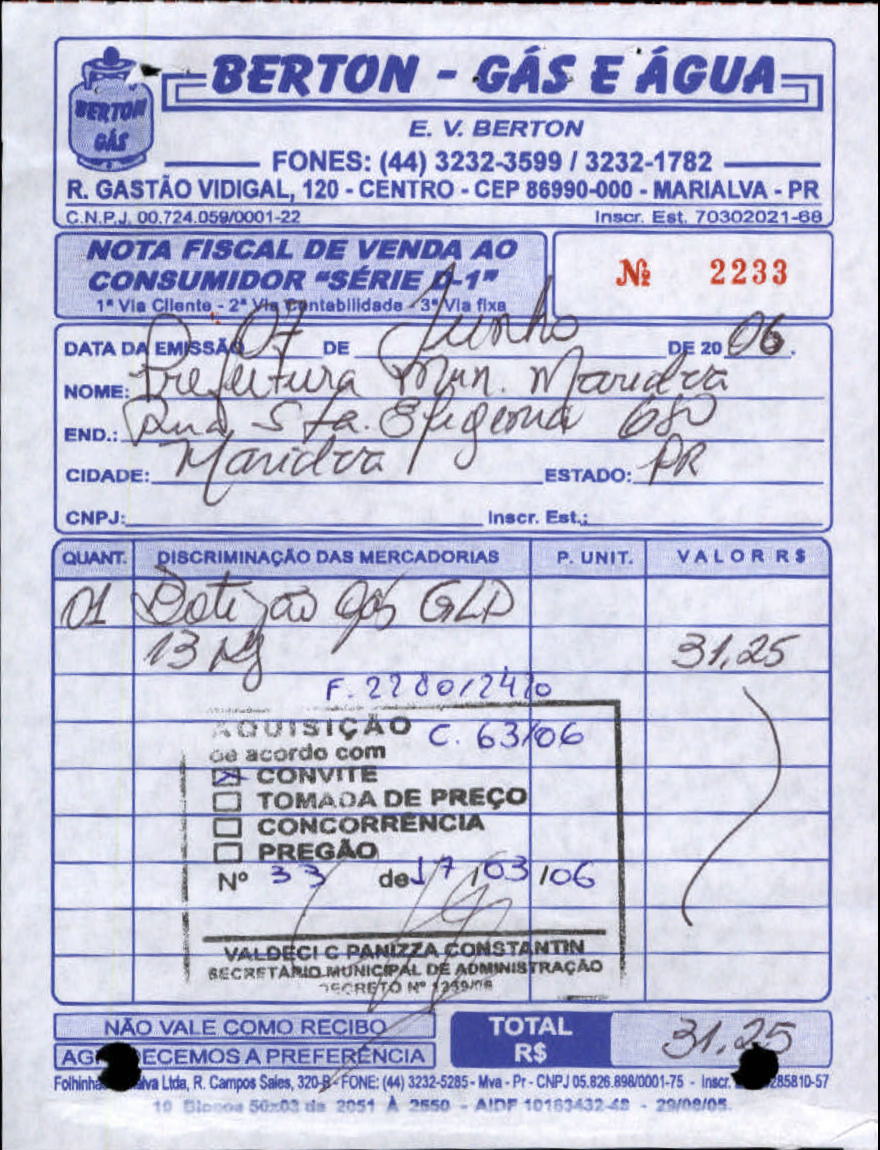 BERTON GÁS
BERTON - GÁS E ÁGUA
E. V. BERTON
FONES: (44) 3232-3599 / 3232-1782
R. GASTÃO VIDIGAL, 120 - CENTRO - CEP 86990-000 - MARIALVA - PR
C.N.P.J. 00.724.059/0001-22 Inscr. Est. 70302021-68
NOTA FISCAL DE VENDA AO
CONSUMIDOR "SÉRIE D-1"
1ª Via Cliente - 2ª Via Contabilidade - 3ª Via fixa
Nº 2233
DATA DA EMISSÃO 07 DE Junho DE 2006.
NOME: Prefeitura Mun. Marialva
END.: Rua Sta. Efigenia 680
CIDADE: Marialva ESTADO: PR
CNPJ: Inscr. Est.:
QUANT. DISCRIMINAÇÃO DAS MERCADORIAS P. UNIT. VALOR R$
01 Botijão gás GLP
13 Kg 31,25
F. 2280/2410
AQUISIÇÃO C. 63/06
de acordo com
CONVITE
TOMADA DE PREÇO
CONCORRÊNCIA
PREGÃO
Nº 33 de 17/03/06
VALDECI C PANIZZA CONSTANTIN
SECRETÁRIO MUNICIPAL DE ADMINISTRAÇÃO
DECRETO Nº
NÃO VALE COMO RECIBO
AGRADECEMOS A PREFERÊNCIA
TOTAL R$ 31,25
Ltda, R. Campos Sales, FONE: (44) 3232-5285 - Mva - Pr - CNPJ 05.826.898/0001-75 - Inscr. 285810-57
10 Blocos 50x03 de 2051 À 2550 - AIDF 10163432-48 - 29/08/05.